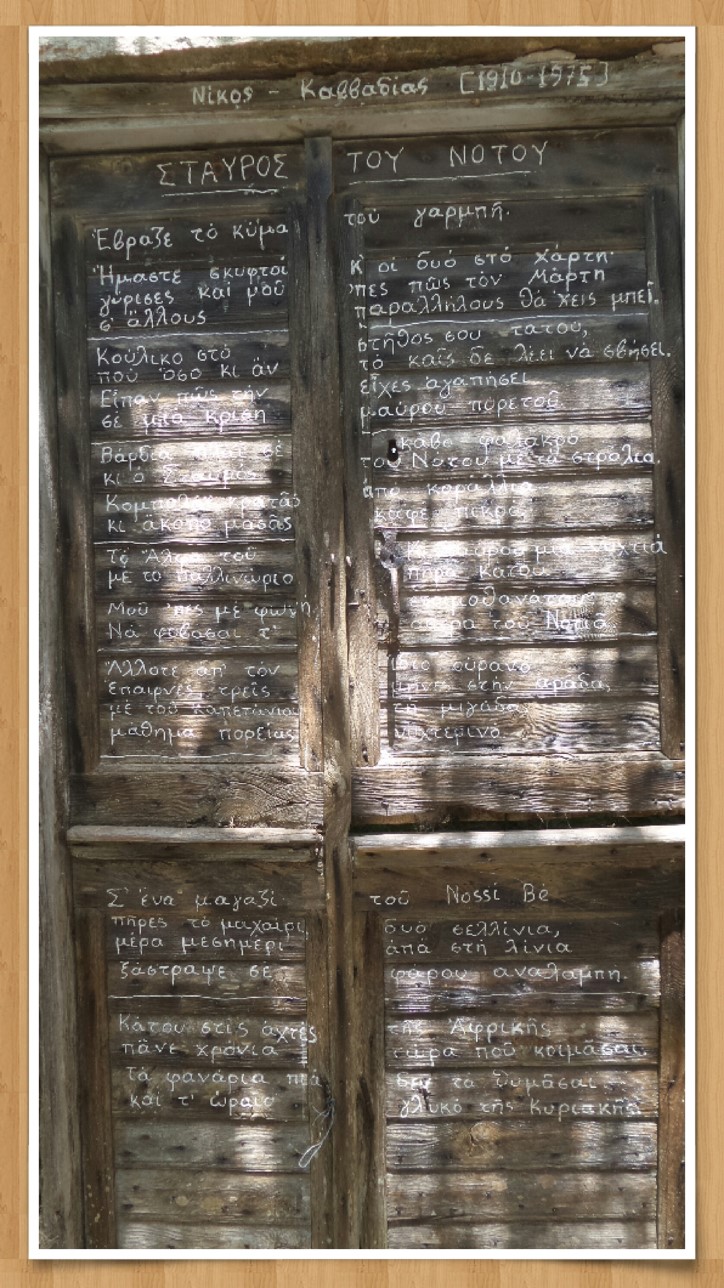 Νίκος - Καββαδίας [1910-1975]
ΣΤΑΥΡΟΣ ΤΟΥ ΝΟΤΟΥ
Ἔβραζε τὸ κύμα τοῦ γαρμπῆ.
Ἤμαστε σκυφτοί κ' οἱ δυό στό χάρτη·
γύρισες καί μοῦ 'πες πῶς τόν Μάρτη
σ' ἄλλους παραλλήλους θά 'χεις μπεῖ.
Κούλικο στό στῆθος σου τατού,
πού ὅσο κι ἄν τό καῖς δε λέει νά σβήσει.
Εἶπαν πῶς τήν εἶχες ἀγαπήσει
σέ μιά κρίση μαύρου πυρετοῦ
Βάρδια πλάι σέ κάβο φαλακρό
κι ὁ Σταυρός τοῦ Νότου μέ τά στράλια.
Κομπολόι κρατᾶς ἀπό κοράλλια
κι ἄκοπο μασᾶς καφέ πικρό
Τό Ἄλφα τοῦ Κενταύρου μιά νυχτιά
μέ τό παλλινώριο πῆρα κάτου
Μοῦ 'πες μέ φωνή ἑτοιμοθανάτου
Νά φοβᾶσαι τ' ἄστρα τοῦ Νοτιᾶ
Ἄλλοτε ἀπ' τόν ἴδιο οὐρανό
ἔπαιρνες τρεῖς μῆνες στήν ἀράδα,
μέ τοῦ καπετάνιου τή μιγάδα
μάθημα πορείας νυχτερινό.
Σ' ἕνα μαγαζί τοῦ Nossi Bé
πῆρες τό μαχαίρι δυό σελλίνια,
μέρα μεσημέρι ἀπά στή λίνια
ξάστραψε σέ φάρου ἀναλαμπή.
Κάτου στίς ἀχτές τῆς Ἀφρικῆς
πᾶνε χρόνια τώρα πού κοιμᾶσαι.
Τά φανάρια πιά δέν τά θυμᾶσαι
καί τ' ὡραῖο γλυκό τῆς Κυριακῆς.